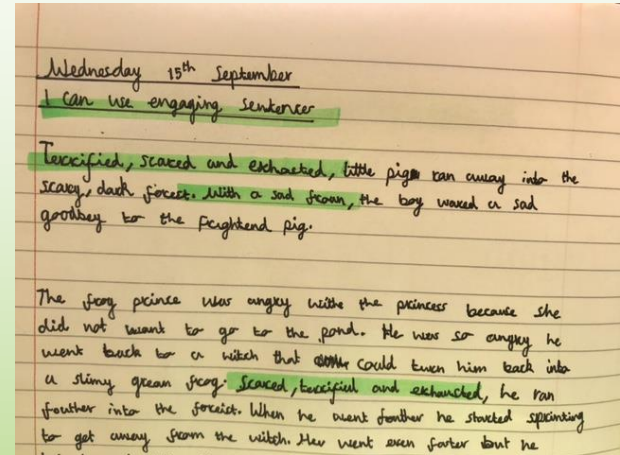 Wednesday 15th September
I can use engaging sentences
Terrified, scared and exhausted, little pig ran away into the
scary, dark forest. With a sad frown, the boy waved a sad
goodbey to the frightend pig.
The frog prince was angry withe the princess because she
did not want to go to the pond. He was so angry he
went back to a witch that could turn him back into
a slimy grean frog. Scared, terrified and exhausted, he ran
fouther into the foreist. When he went fouther he started sprinting
to get away from the witch. He went even farter but he